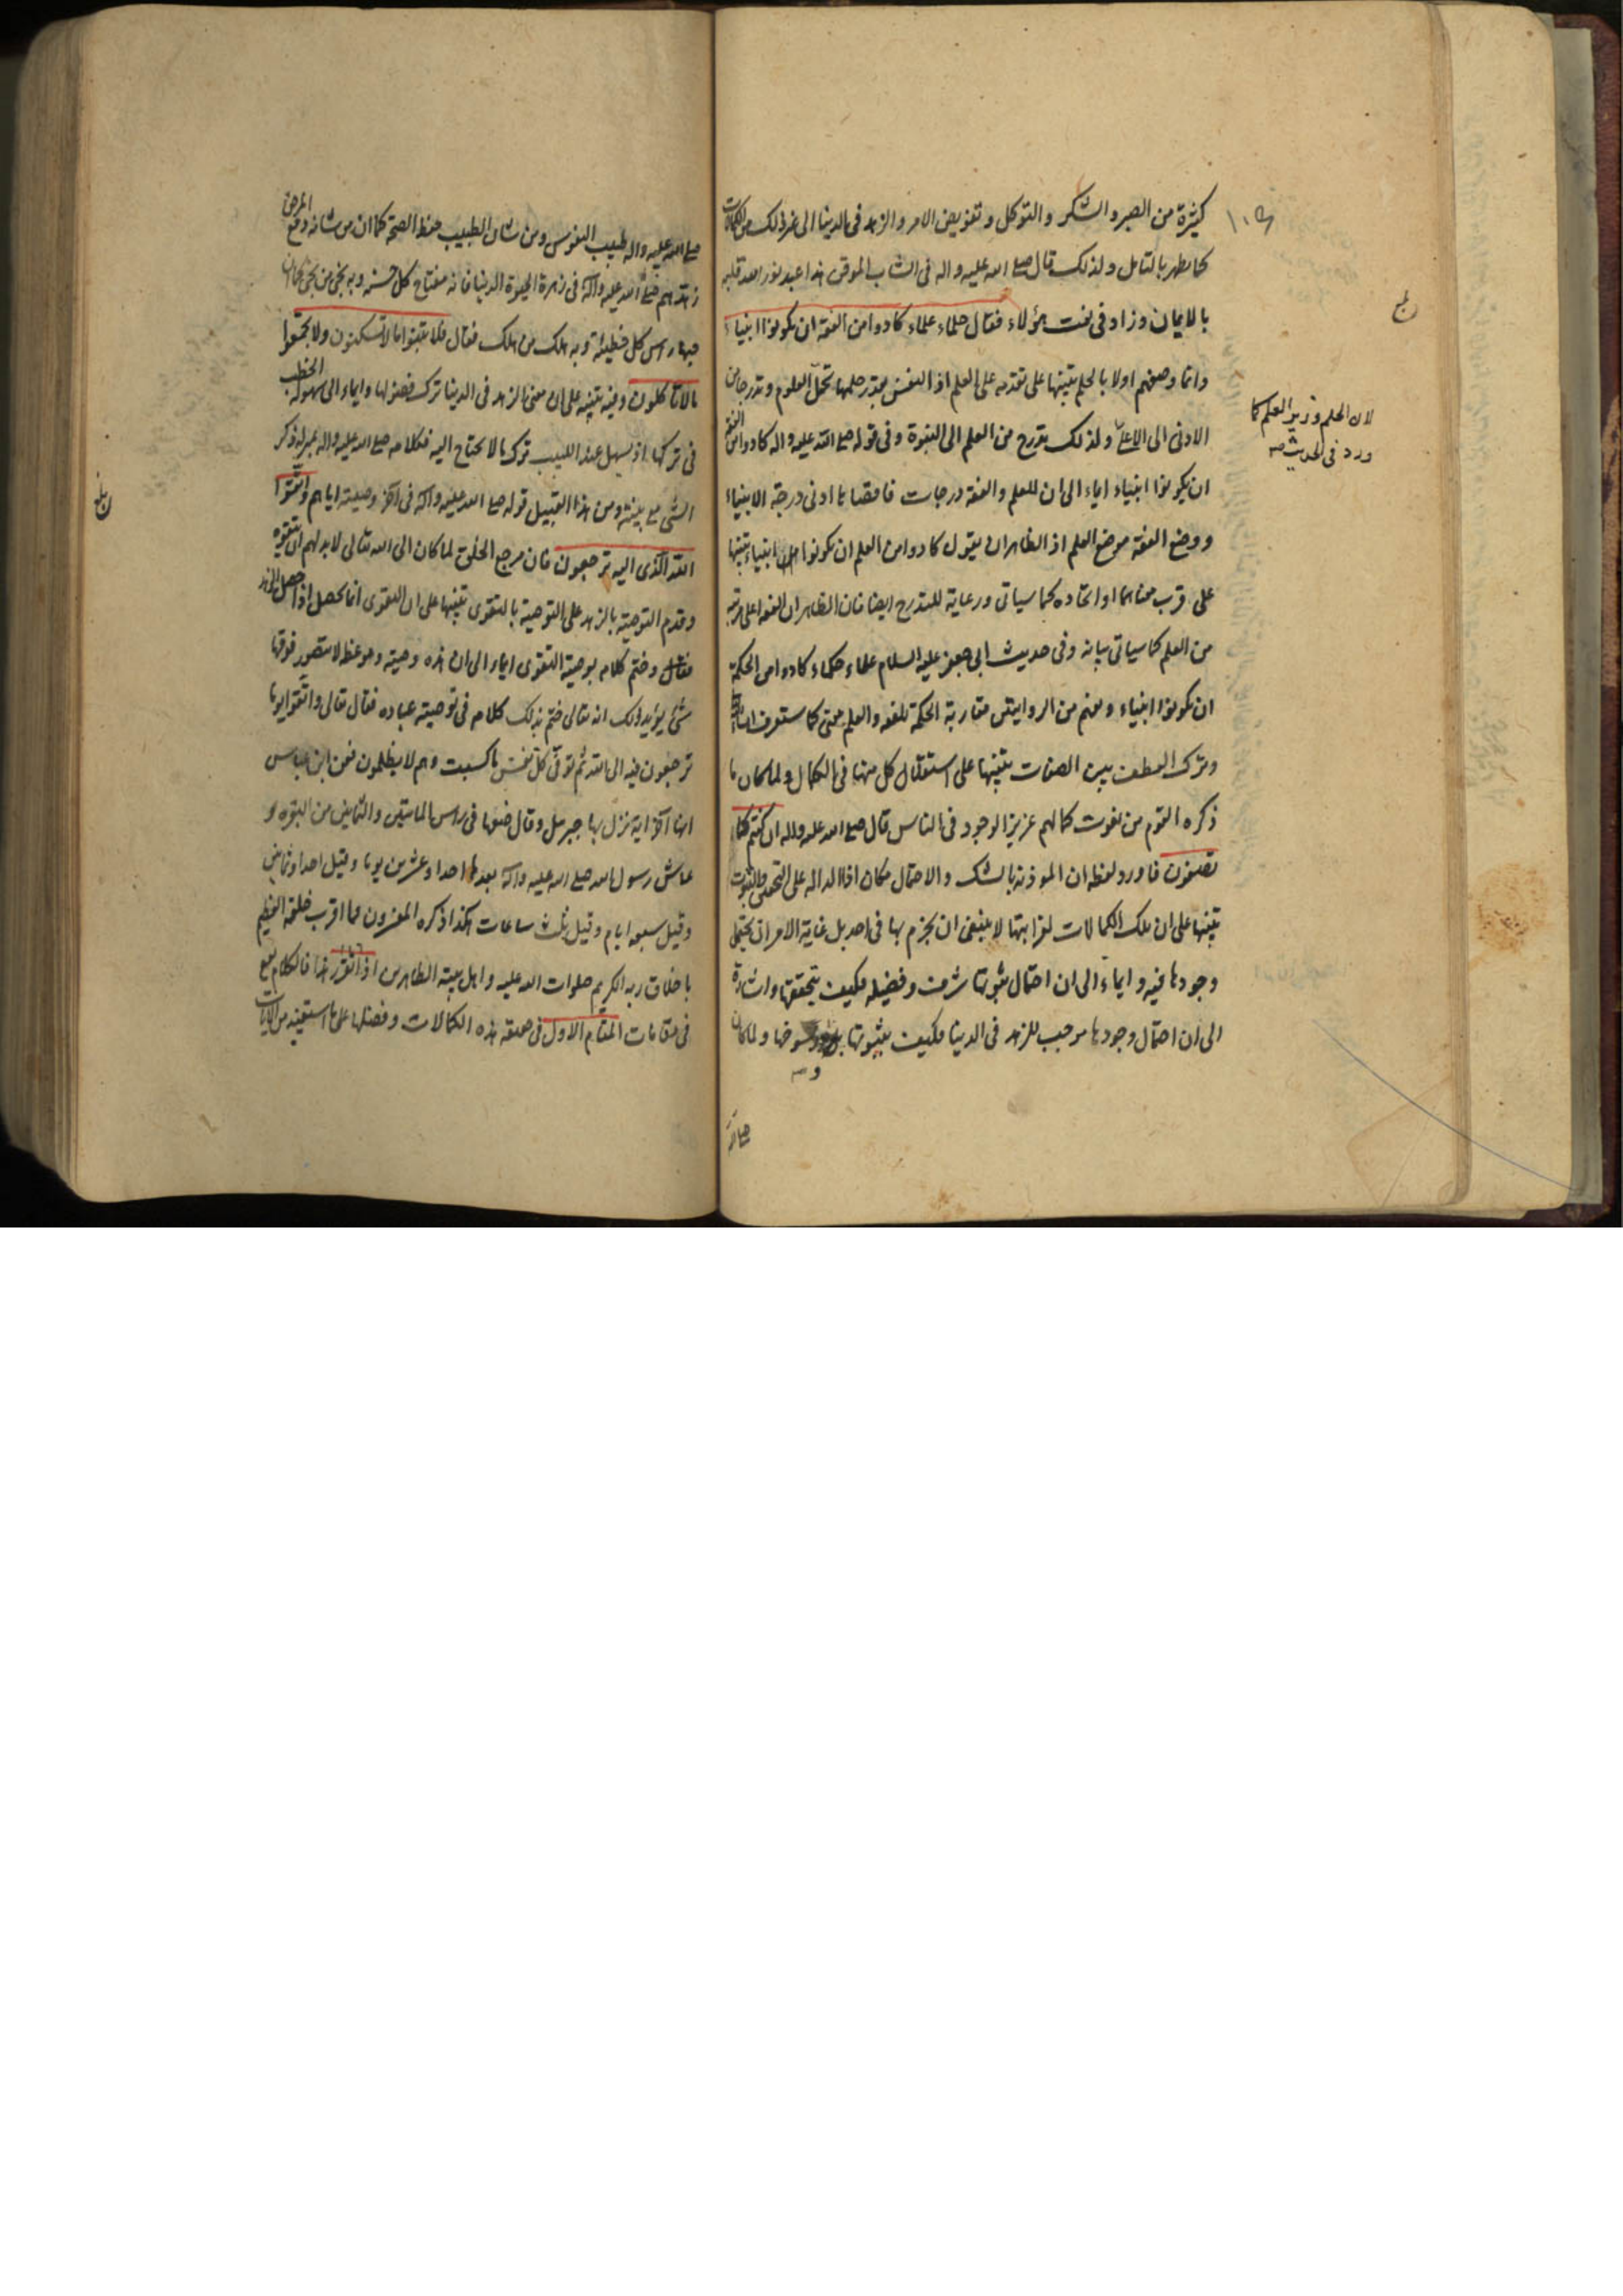 كثيرة من الصبر والشكر والتوكل وتفويض الامر والزهد فى الدنيا الى غير ذلك من الكمالات
كما يظهر بالتامل ولذلك قال صلى الله عليه واله فى الشاب الموقن هذا عبد نور الله قلبه
بالايمان وزاد فى نعت هؤلاء فقال حلماء علماء كادوا من الفقه ان يكونوا انبياء
وانما وصفهم اولا بالحلم تنبيها على تقدمه على العلم اذ النفس بقدر حلمها تحمل العلوم وتدرجا من
الادنى الى الاعلى ولذلك تدرج من العلم الى النبوة وفى قوله صلى الله عليه واله كادوا من الفقه
ان يكونوا انبياء ايماء الى ان للعلم والفقه درجات فاقصاها ادنى درجة الانبياء
ووضع الفقه موضع العلم اذ الظاهر ان يقول كادوا من العلم ان يكونوا انبياء تنبيها
على قرب معناهما او اتحاده كما سياتى ورعاية للتدرج ايضا فان الظاهر ان الفقه اعلى مرتبة
من العلم كما سياتى بيانه وفى حديث ابى جعفر عليه السلام علماء حكماء كادوا من الحكمة
ان يكونوا انبياء ويفهم من الروايتين مقاربة الحكمة للفقه والعلم معنى كما ستعرف ان شاء الله
وترك العطف بين الصفات تنبيها على استقلال كل منها فى الكمال ولما كان ما
ذكره القوم من نعوت كمالهم عزيز الوجود فى الناس قال صلى الله عليه واله ان كنتم كما
تصفون فاورد لفظه ان الموذنة بالشك والاحتمال مكان اذا الدالة على التحقق والثبوت
تنبيها على ان تلك الكمالات لغرابتها لا ينبغى ان يجزم بها فى احد بل غاية الامر ان يحتمل
وجودها فيه وايماء الى ان احتمال ثبوتها شرف وفضيله فكيف بتحققها واشارة
الى ان احتمال وجودها موجب للزهد فى الدنيا فكيف بثبوتها ورسوخها ولما كان
لان الحلم وزير العلم كما
ورد فى الحديث منه
صلى الله عليه واله طبيب النفوس ومن شان الطبيب حفظ الصحة كما ان من شانه دفع المرض
زهدهم صلى الله عليه واله فى زهرة الحيوة الدنيا فانه مفتاح كل حسنه وبه نجى من نجى كما ان
حبها راس كل خطيئة وبه هلك من هلك فقال فلا تبنوا ما لا تسكنون ولا تجمعوا
ما لا تاكلون وفيه تنبيه على ان معنى الزهد فى الدنيا ترك فضولها وايماء الى سهولة الخطب
فى تركها اذ يسهل عند اللبيب ترك ما لا يحتاج اليه فكلامه صلى الله عليه واله بمنزلة ذكر
الشئ مع بينته ومن هذا القبيل قوله صلى الله عليه واله فى اخر وصيته اياهم واتقوا
الله الذى اليه ترجعون فان مرجع الخلق لما كان الى الله تعالى لابد لهم ان يتقوه
وقدم التوصية بالزهد على التوصية بالتقوى تنبيها على ان التقوى انما تحصل اذا حصل الزهد
وختم كلامه بوصية التقوى ايماء الى ان هذه وصية وموعظة لا يتصور فوقها
شئ يؤيد ذلك انه تعالى ختم بذلك كلامه فى توصية عباده فقال تعالى واتقوا يوما
ترجعون فيه الى الله ثم توفى كل نفس ما كسبت وهم لا يظلمون فعن ابن عباس
انها اخر اية نزل بها جبرئيل وقال ضعها فى راس المائتين والثمانين من البقره و
عاش رسول الله صلى الله عليه واله بعدها احدا وعشرين يوما وقيل احدا وثمانين
وقيل سبعه ايام وقيل ثلث ساعات هكذا ذكره المفسرون فما اقرب خلقه العظيم
باخلاق ربه الكريم صلوات الله عليه واهل بيته الطاهرين اذا تقرر هذا فالكلام يقع
فى مقامات المقام الاول فى حقيقة هذه الكمالات وفضلها على ما استفيد من الايات